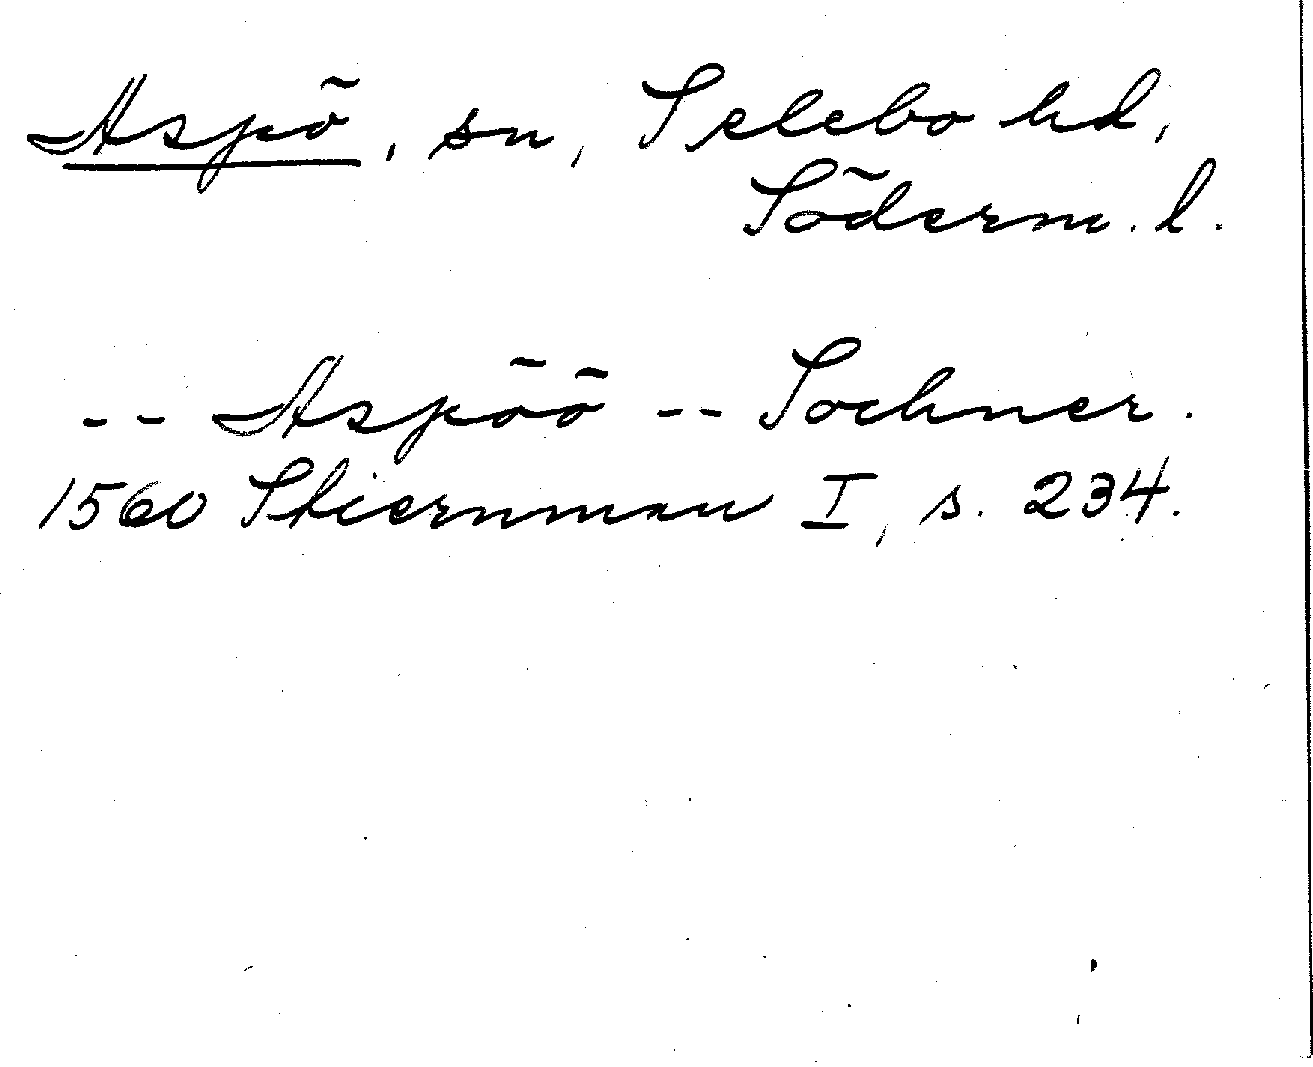 Aspö, sn, Selebo hd,
Söderm. l.
-- Aspöö -- Sochner.
1560 Stiernman I, s. 234.